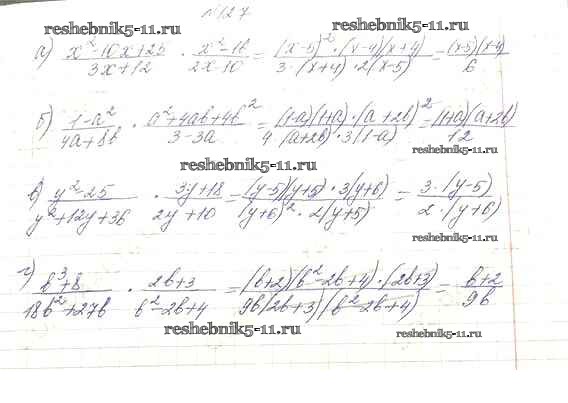 №127
reshebnik5-11.ru
reshebnik5-11.ru
а) (x²-10x+25)/(3x+12) · (x²-16)/(2x-10) = ((x-5)²·(x-4)(x+4))/(3·(x+4)·2(x-5)) = ((x-5)(x-4))/6
б) (1-a²)/(4a+8b) · (a²+4ab+4b²)/(3-3a) = ((1-a)(1+a)·(a+2b)²)/(4·(a+2b)·3(1-a)) = ((1+a)(a+2b))/12
reshebnik5-11.ru
в) (y²-25)/(y²+12y+36) · (3y+18)/(2y+10) = ((y-5)(y+5)·3(y+6))/((y+6)²·2(y+5)) = (3·(y-5))/(2·(y+6))
reshebnik5-11.ru
г) (b³+8)/(18b²+27b) · (2b+3)/(b²-2b+4) = ((b+2)(b²-2b+4)·(2b+3))/(9b(2b+3)(b²-2b+4)) = (b+2)/9b
reshebnik5-11.ru
reshebnik5-11.ru